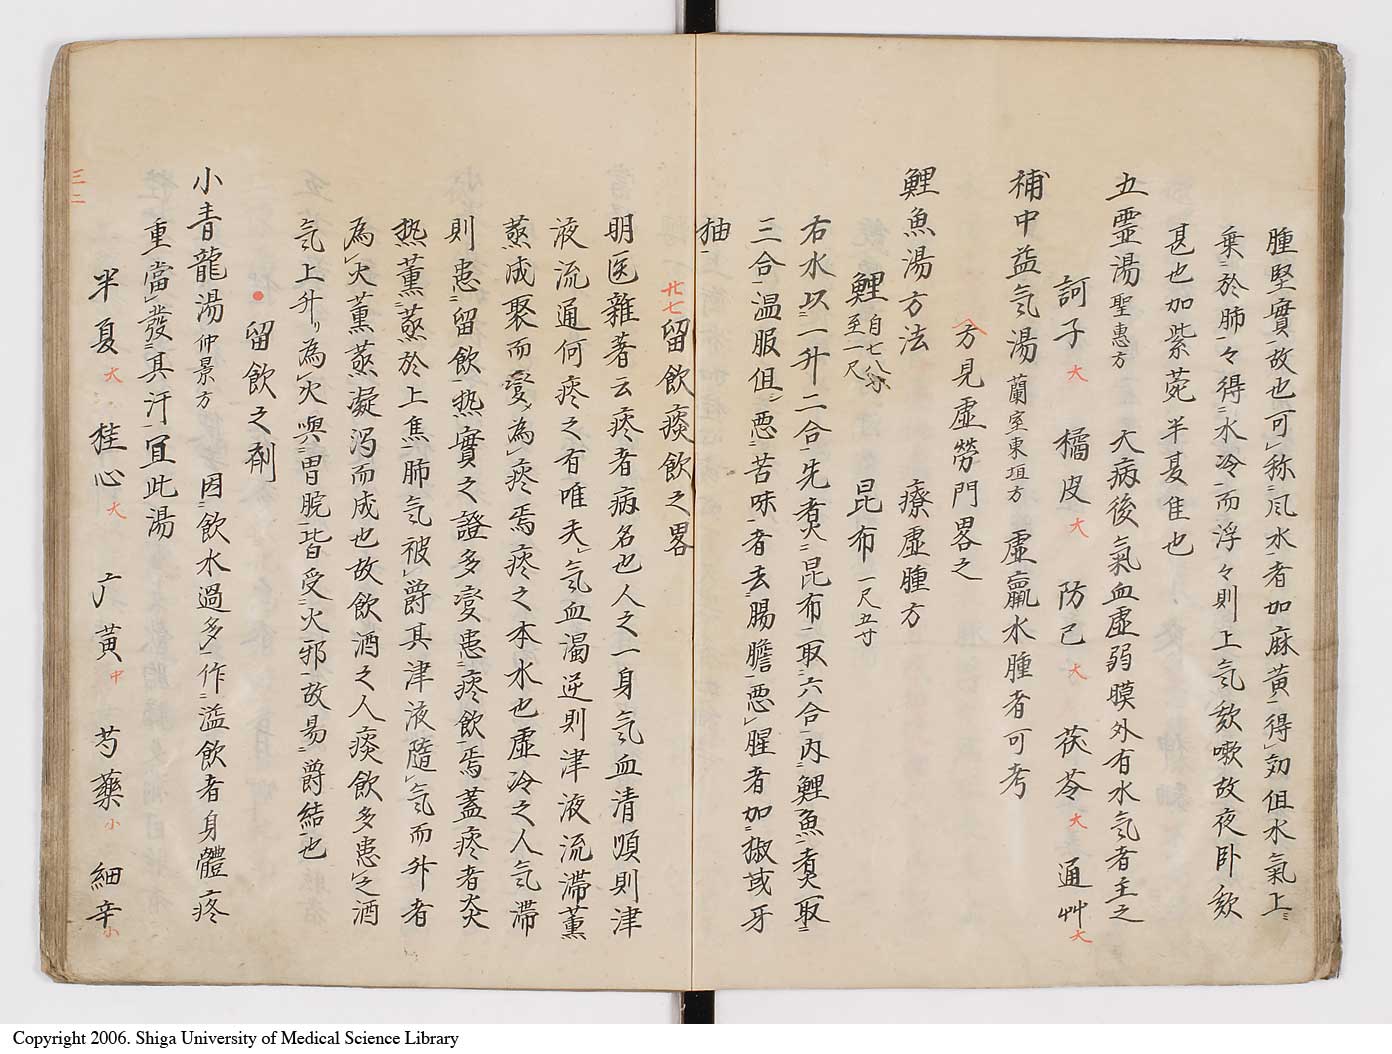 腫堅實故也可称风水者加麻黄得効但水氣上
乗於肺々得水冷而浮々則上气欬嗽故夜卧欬
甚也加紫菀半夏佳也
五霊湯 聖惠方 大病後氣血虚弱膜外有水气者主之
訶子 大 橘皮 大 防己 大 茯苓 大 通艸 大
補中益气湯 蘭室東垣方 虚羸水腫者可考
方見虚勞門畧之
鯉魚湯方法 療虚腫方
鯉 自七八分至一尺 昆布 一尺五寸
右水以一升二合先煮昆布取六合内鯉魚煮取
三合温服但悪苦味者去腸膽悪腥者加椒或牙
抽
廿七 留飲痰飲之畧
明医雜著云疼者病名也人之一身气血清順則津
液流通何疼之有唯夫气血濁逆則津液流滞薫
蒸成聚而変為疼焉疼之本水也虚冷之人气滞
則患留飲热實之證多変患疼飲焉蓋疼者炎
热薫蒸於上焦肺气被爵其津液隨气而升者
為火薫蒸凝濁而成也故飲酒之人痰飲多患之酒
气上升り為火與胃脘皆受火邪故易爵結也
留飲之劑
小青龍湯 仲景方 因飲水過多作溢飲者身體疼
重當發其汗宜此湯
半夏 大 桂心 大 广黄 中 芍藥 小 細辛 小
三二
Copyright 2006. Shiga University of Medical Science Library